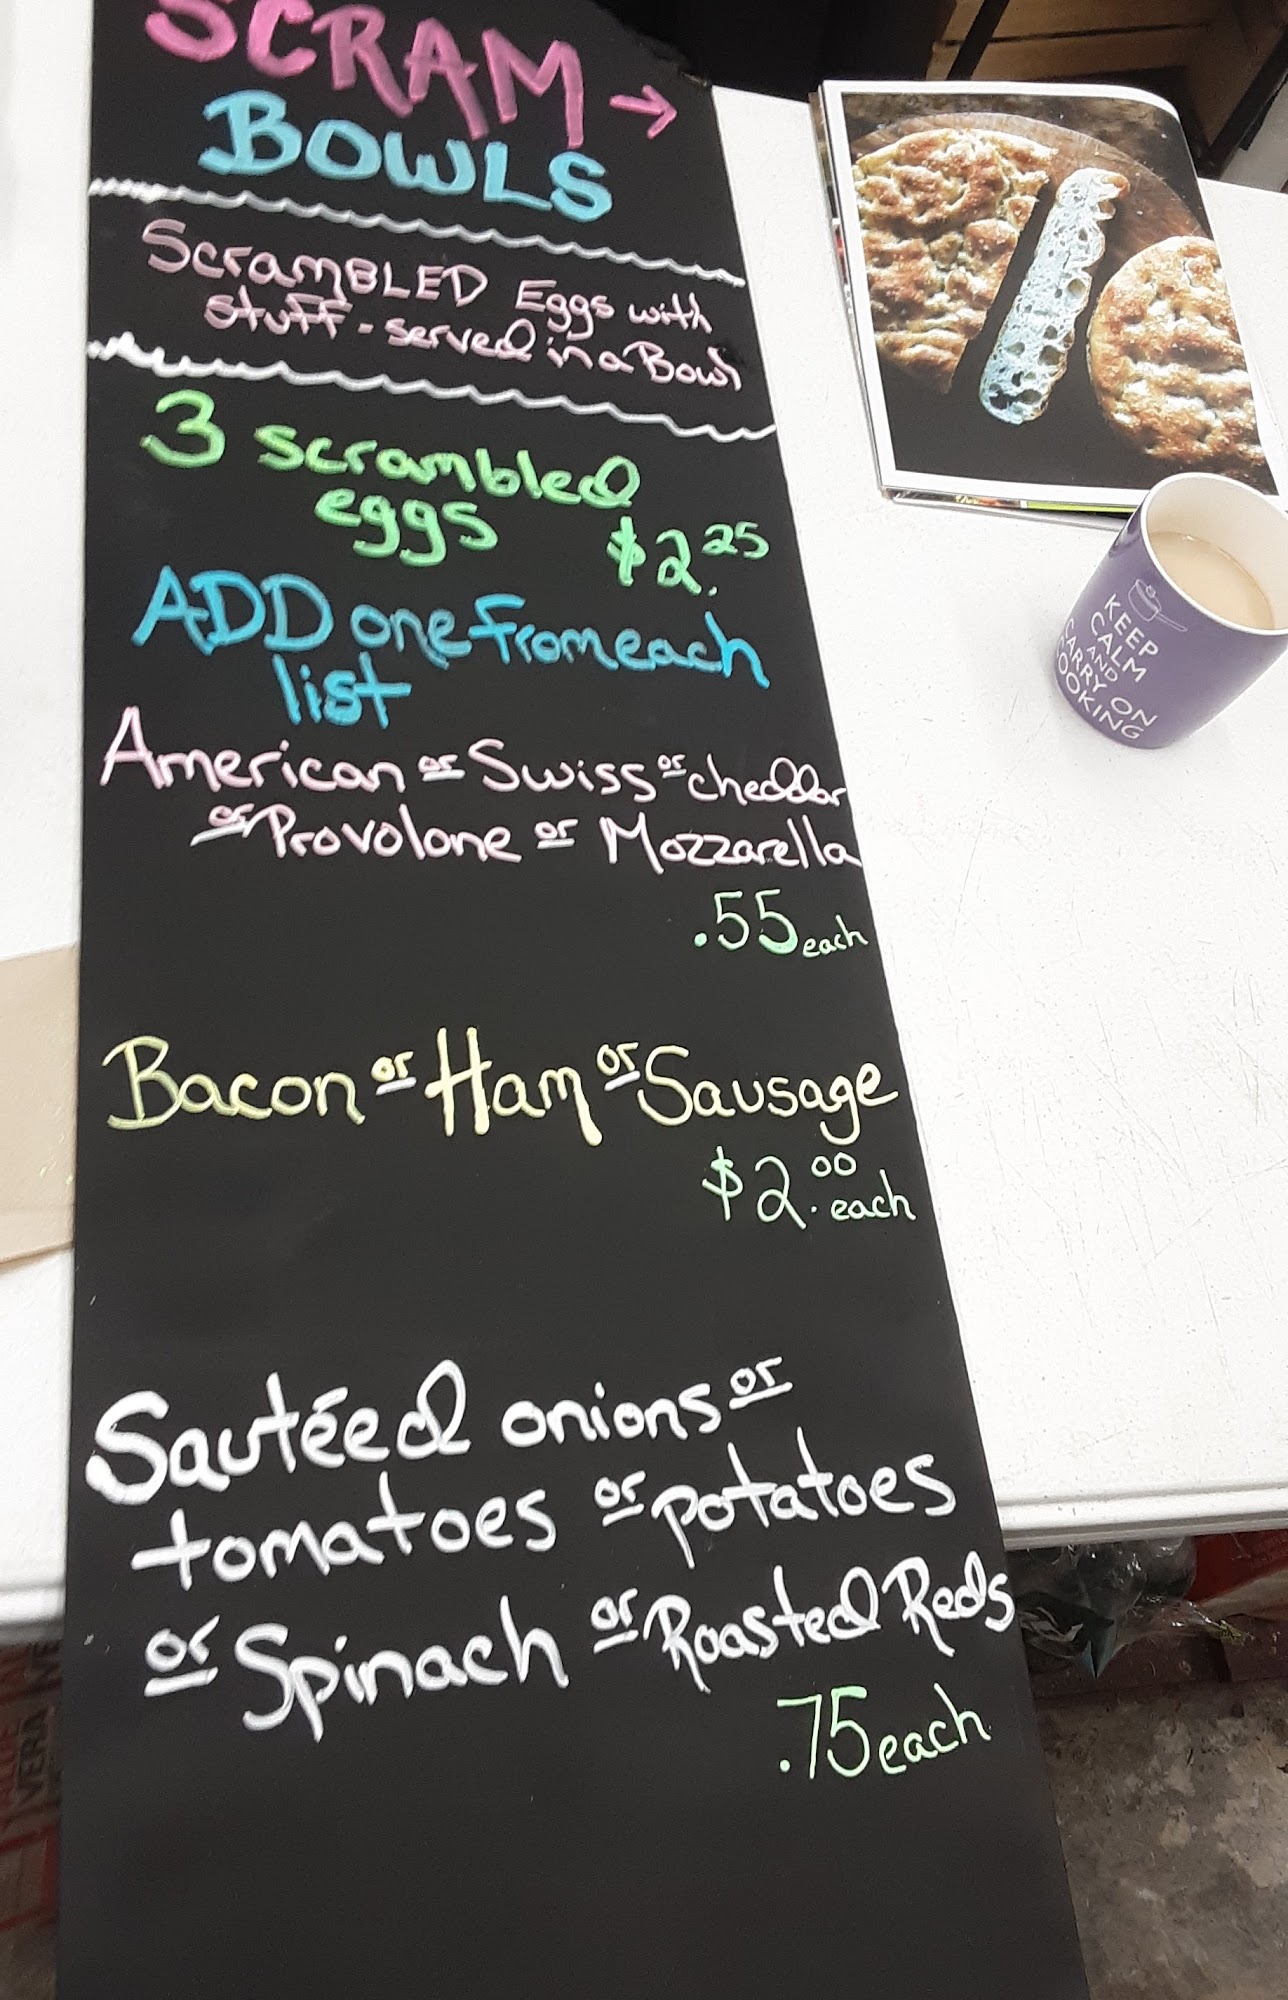 SCRAM →
BOWLS
SCramBLED Eggs with
stuff - served in a Bowl
3 scrambled
eggs
$2.25
ADD one from each
list
American or Swiss or cheddar
or Provolone or Mozzarella
.55 each
Bacon or Ham or Sausage
$2.00 each
Sautéed onions or
tomatoes or potatoes
or Spinach or Roasted Reds
.75 each
KEEP
CALM
AND
CARRY ON
COOKING